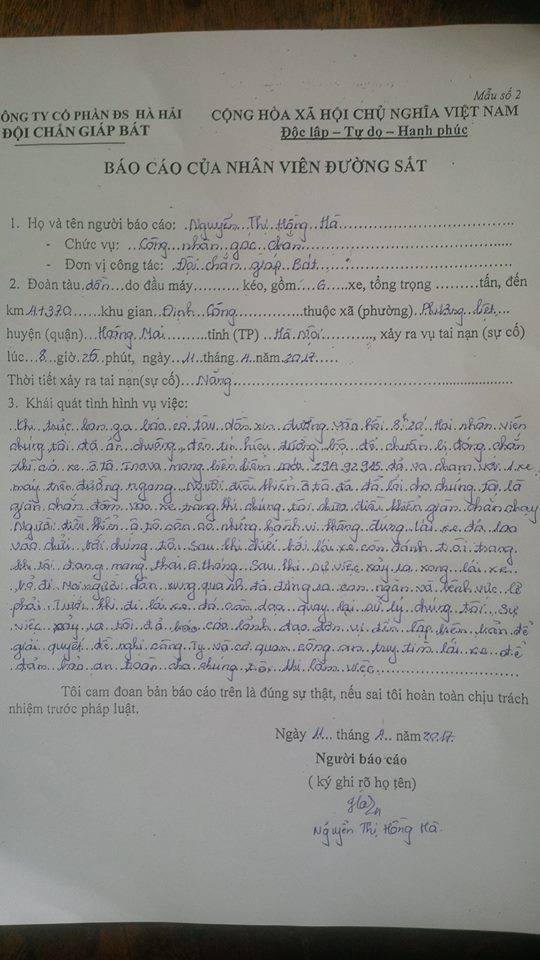 Mẫu số 2
ÔNG TY CỔ PHẦN ĐS HÀ HẢI CỘNG HÒA XÃ HỘI CHỦ NGHĨA VIỆT NAM
ĐỘI CHẮN GIÁP BÁT Độc lập – Tự do – Hạnh phúc
BÁO CÁO CỦA NHÂN VIÊN ĐƯỜNG SẮT
1. Họ và tên người báo cáo: Nguyễn Thị Hồng Hà
- Chức vụ: Công nhân gác chắn
- Đơn vị công tác: Đội chắn giáp Bát
2. Đoàn tàu dồn do đầu máy.......... kéo, gồm 6 xe, tổng trọng ..........tấn, đến
km 4+370 khu gian Định Công thuộc xã (phường) Phương liệt
huyện (quận) Hoàng Mai tỉnh (TP) Hà Nội, xảy ra vụ tai nạn (sự cố)
lúc 8 giờ 26 phút, ngày 11 tháng 4 năm 2017
Thời tiết xảy ra tai nạn(sự cố) Nắng
3. Khái quát tình hình vụ việc:
Khi trực ban ga báo có tàu dồn xin đường vào hồi 8h20' Hai nhân viên
chúng tôi đã ấn chuông, đèn tín hiệu đường bộ để chuẩn bị đóng chắn
thì có xe ô tô Inova mang biển kiểm 29A 92 915 đã va chạm với 1 xe
máy trên đường ngang. Người điều khiển ô tô đã đổ lỗi cho chúng tôi là
giàn chắn đâm vào xe trong khi chúng tôi chưa điều khiển giàn chắn chạy
Người điều khiển ô tô còn có những hành vi thăng dừng lái xe đó lao
vào chửi bới chúng tôi sau khi chửi bới lái xe còn đánh tôi trong
khi tôi đang mang thai 6 tháng. Sau khi sự việc xảy ra xong lái xe
bỏ đi Mọi người dân xung quanh đã đứng ra can ngăn và bênh vực lẽ
phải Trước khi đi lái xe đó còn dọa quay lại sử lý chúng tôi. Sự
việc xảy ra tôi đã báo cáo lãnh đạo đơn vị đến lập biên bản để
giải quyết đề nghị công Ty và cơ quan công an truy tìm lái xe để
đảm bảo an toàn cho chúng tôi khi làm việc
Tôi cam đoan bản báo cáo trên là đúng sự thật, nếu sai tôi hoàn toàn chịu trách
nhiệm trước pháp luật.
Ngày 11 tháng 4 năm 2017
Người báo cáo
( ký ghi rõ họ tên)
Nguyễn Thị Hồng Hà